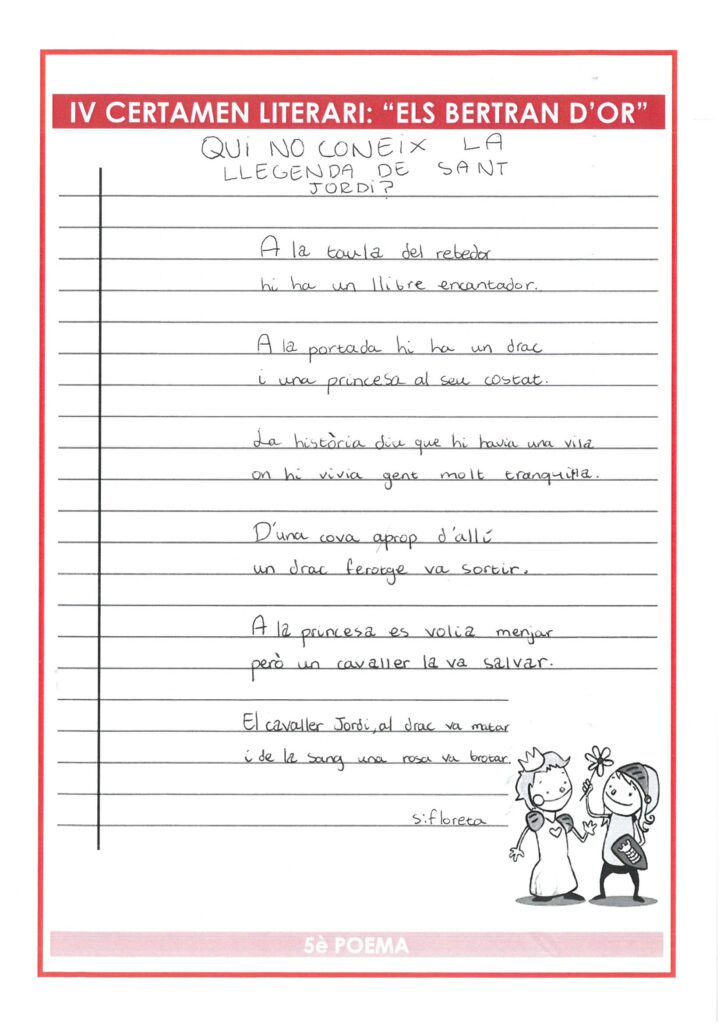 IV CERTAMEN LITERARI: “ELS BERTRAN D’OR”
QUI NO CONEIX LA
LLEGENDA DE SANT
JORDI?
A la taula del rebedor
hi ha un llibre encantador.
A la portada hi ha un drac
i una princesa al seu costat.
La història diu que hi havia una vila
on hi vivia gent molt tranquil·la.
D'una cova aprop d'allí
un drac ferotge va sortir.
A la princesa es volia menjar
però un cavaller la va salvar.
El cavaller Jordi, al drac va matar
i de la sang una rosa va brotar.
s:floreta
5è POEMA